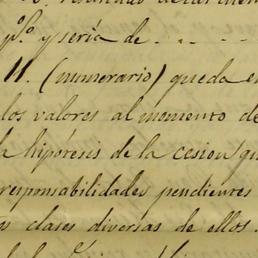 y sería de . - - -
11. (numerario) queda e
los valores al momento de
a hipótesis de la cesion qu
responsabilidades pendientes
s clases diversas de ellos.